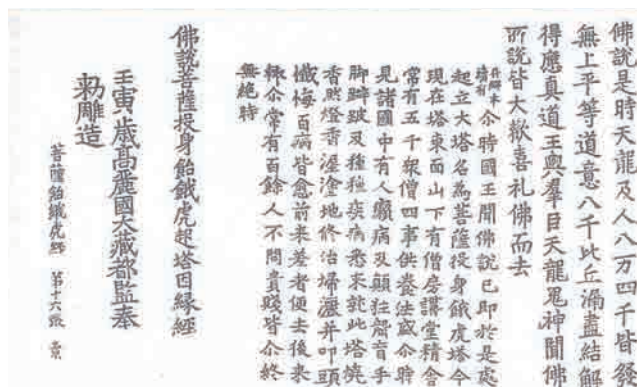 佛說是時天龍及人八万四千皆發
無上平等道意八千比丘漏盡結解
得應真道王與羣臣天龍鬼神聞佛
所說皆大歡喜礼佛而去
丹鄉本續有尒時國王聞佛說已即於是處
起立大塔名為菩薩投身餓虎塔今
現在塔東面山下有僧房講堂精舍
常有五千衆僧四事供養法盛尒時
見諸國中有人癩病及癲狂聾盲手
脚躃跛及種種疾病悉來就此塔燒
香然燈香埿塗地修治掃灑并叩頭
懺悔百病皆愈前來差者便去後來
輒尒常有百餘人不問貴賤皆尒終
無絶時
佛說菩薩投身飴餓虎起塔因緣經
壬寅歳高麗國大藏都監奉
勑雕造
菩薩飴餓虎經 第十六張 景